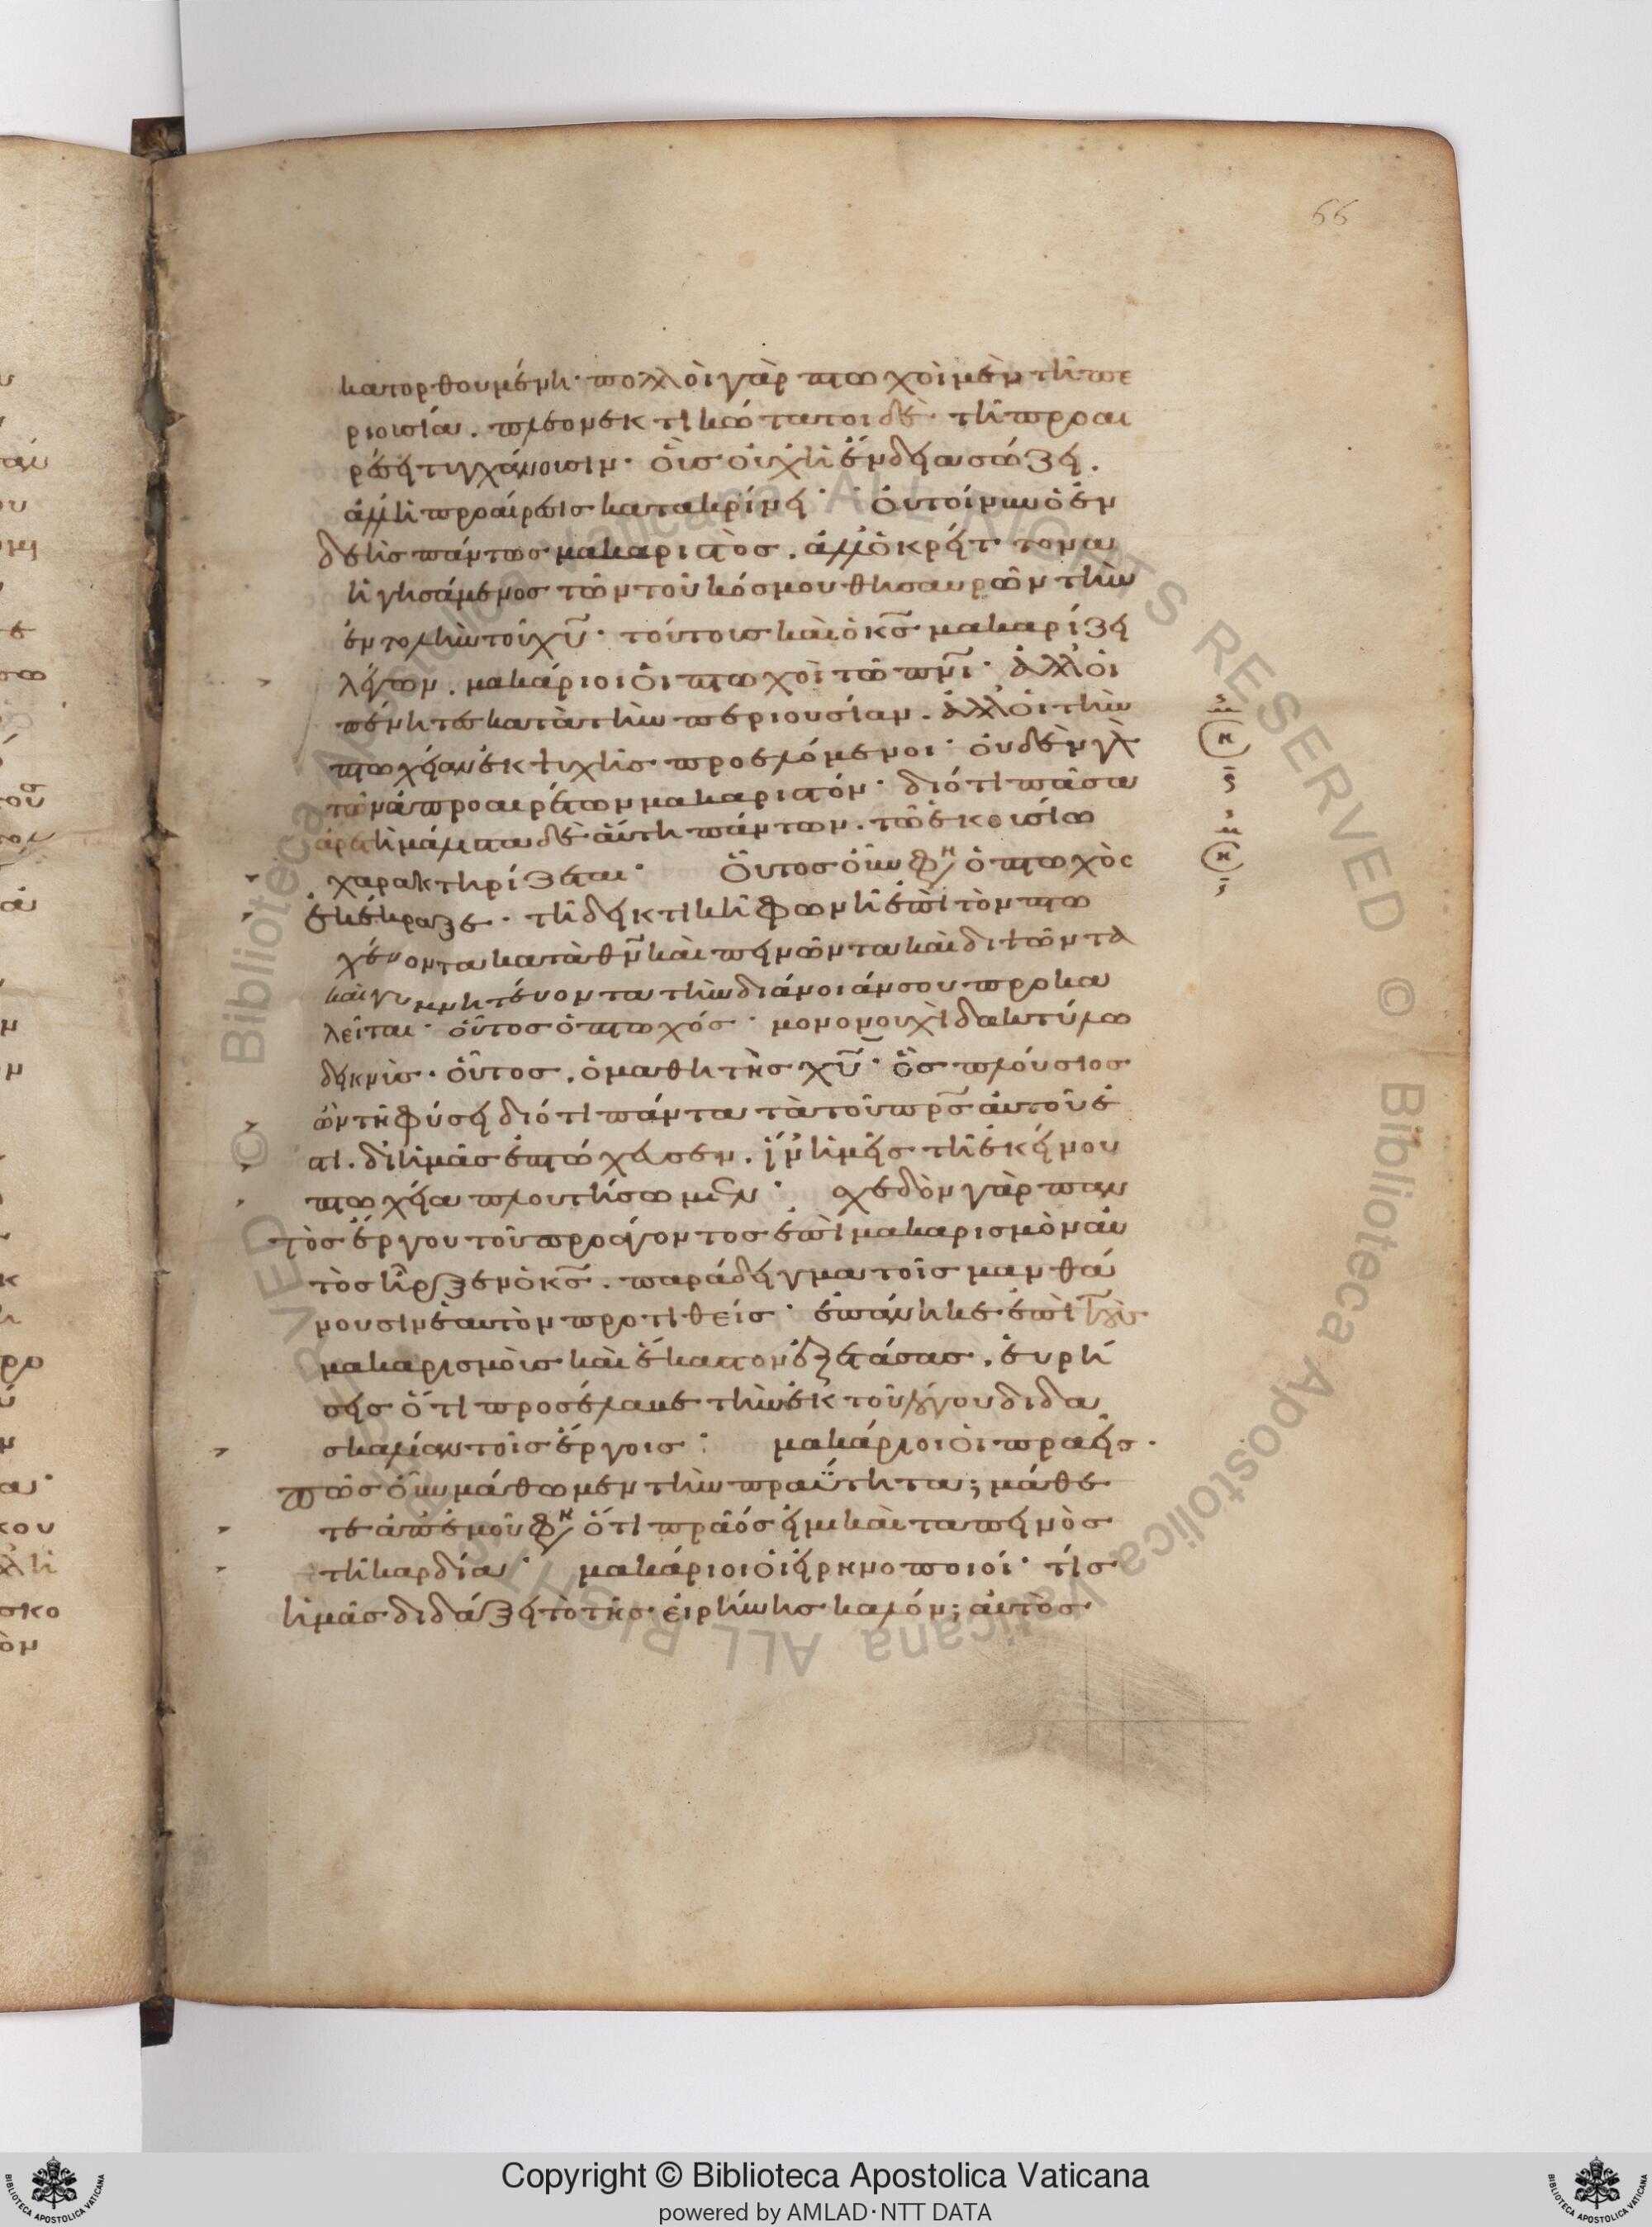 66
κατορθουμένη· πολλοὶ γὰρ πτωχοὶ μὲν τῆ πε
ριουσία. πλεονεκτικώτατοι δὲ τῆ προαι
ρέσει τυγχάνουσιν· οἷς οὐχ ἡ ἔνδεια σώζει.
ἀλλ' ἡ προαίρεσις κατακρίνει· οὐ τοίνυν ὁ ἐν
δεὴς πάντως μακαριστὸς. ἀλλ' ὁ κρείττονα
ἡγησάμενος τῶν τοῦ κόσμου θησαυρῶν τὴν
ἐντολὴν τοῦ χυ· τούτους καὶ ὁ κς μακαρίζει
λέγων. μακάριοι οἱ πτωχοὶ τῶ πνι· ἀλλ' οἱ
πένητες κατὰ τὴν περιουσίαν. ἀλλ' οἱ τὴν
πτωχείαν ἐκ ψυχῆς προελόμενοι· οὐδὲν γὰρ
τῶν ἀπροαιρέτων μακαριστόν· διότι πᾶσα
ἀρετὴ μάλιστα δὲ αὕτη πάντων. τῶ ἑκουσίω
χαρακτηρίζεται· Οὗτος οὖν φη ὁ πτωχὸς
ἐκέκραξε· τῆ δεικτικῆ φωνῆ ἐπὶ τὸν πτω
χεύοντα κατὰ θν καὶ πεινῶντα καὶ διψῶντα
καὶ γυμνητεύοντα τὴν διάνοιάν σου προκα
λεῖται· οὗτος ὁ πτωχός· μονονουχὶ δακτύλω
δεικνὺς· οὗτος. ὁ μαθητὴς χυ· ὃς πλούσιος
ὢν τῆ φύσει διότι πάντα τὰ τοῦ πρς αὐτοῦ ἐ
στι. δι' ἡμᾶς ἐπτώχευσεν. ἵν' ἡμεῖς τῆ ἐκείνου
πτωχεία πλουτήσωμεν· σχεδὸν γὰρ παν
τὸς ἔργου τοῦ προάγοντος ἐπὶ μακαρισμὸν αὐ
τὸς ἦρξεν ὁ κς. παράδειγμα τοῖς μανθά
νουσιν ἑαυτὸν προτιθείς· ἐπάνηκε ἐπὶ τοὺς
μακαρισμοὺς καὶ ἕκαστον ἐξετάσας. εὑρή
σεις ὅτι προσέλαβε τὴν ἐκ τοῦ λόγου διδα
σκαλίαν τοῖς ἔργοις· μακάριοι οἱ πραεῖς·
πῶς οὖν μάθωμεν τὴν πραΰτητα; μάθε
τε ἀπ' ἐμοῦ φη ὅτι πρᾶός εἰμι καὶ ταπεινὸς
τῆ καρδία· μακάριοι οἱ εἰρηνοποιοί· τίς
ἡμᾶς διδάξει τὸ τῆς εἰρήνης καλόν; αὐτὸς
Copyright © Biblioteca Apostolica Vaticana
powered by AMLAD·NTT DATA